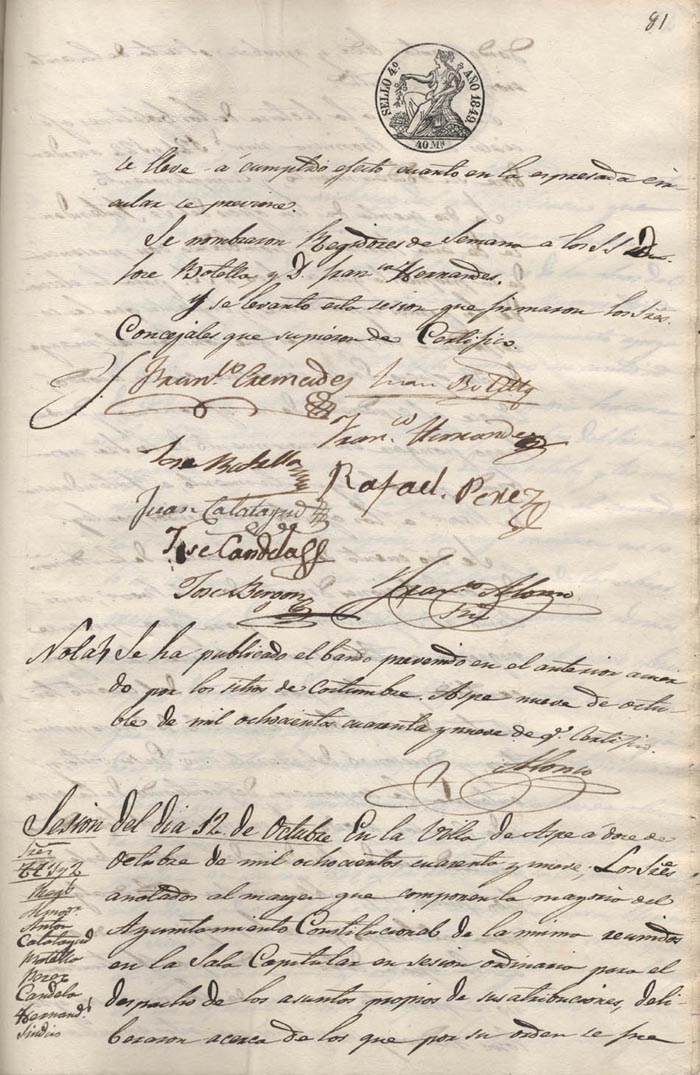 81
SELLO 4º AÑO 1849.
40 Ms
se lleve á cumplido efecto cuanto en la espresada cir
cular se previene.
Se nombraron Regidores de Semana a los SS Dn
Jose Botella y D. Franco Hernandes.
Y se levanto esta sesion que firmaron los Sres
Concejales que supieron de Certifico.
Franco Cremades Juan Botella
Franco Hernandez
Jose Botella
Rafael. Perez
Juan Calatayud
Jose Candela
Jose Bergon
Franco Alonso
Srio
Nota Se ha publicado el bando prevenido en el anterior acuer
do por los sitios de Costumbre. Aspe nueve de octu
bre de mil ochocientos cuarenta y nueve de qe Certifico.
Alonso
Sesion del dia 12 de Octubre En la Villa de Aspe a doce de
Octubre de mil ochocientos cuarenta y nueve. Los Sres
anotados al margen que componen la mayoria del
Ayuntamiento Constitucional de la misma reunidos
en la Sala Capitular en sesion ordinaria para el
despacho de los asuntos propios de sus atribuciones, deli
beraron acerca de los que por su orden se pre
Sres
Anton
Calatayud
Botella
Perez
Candela
Hernandz
Sindico